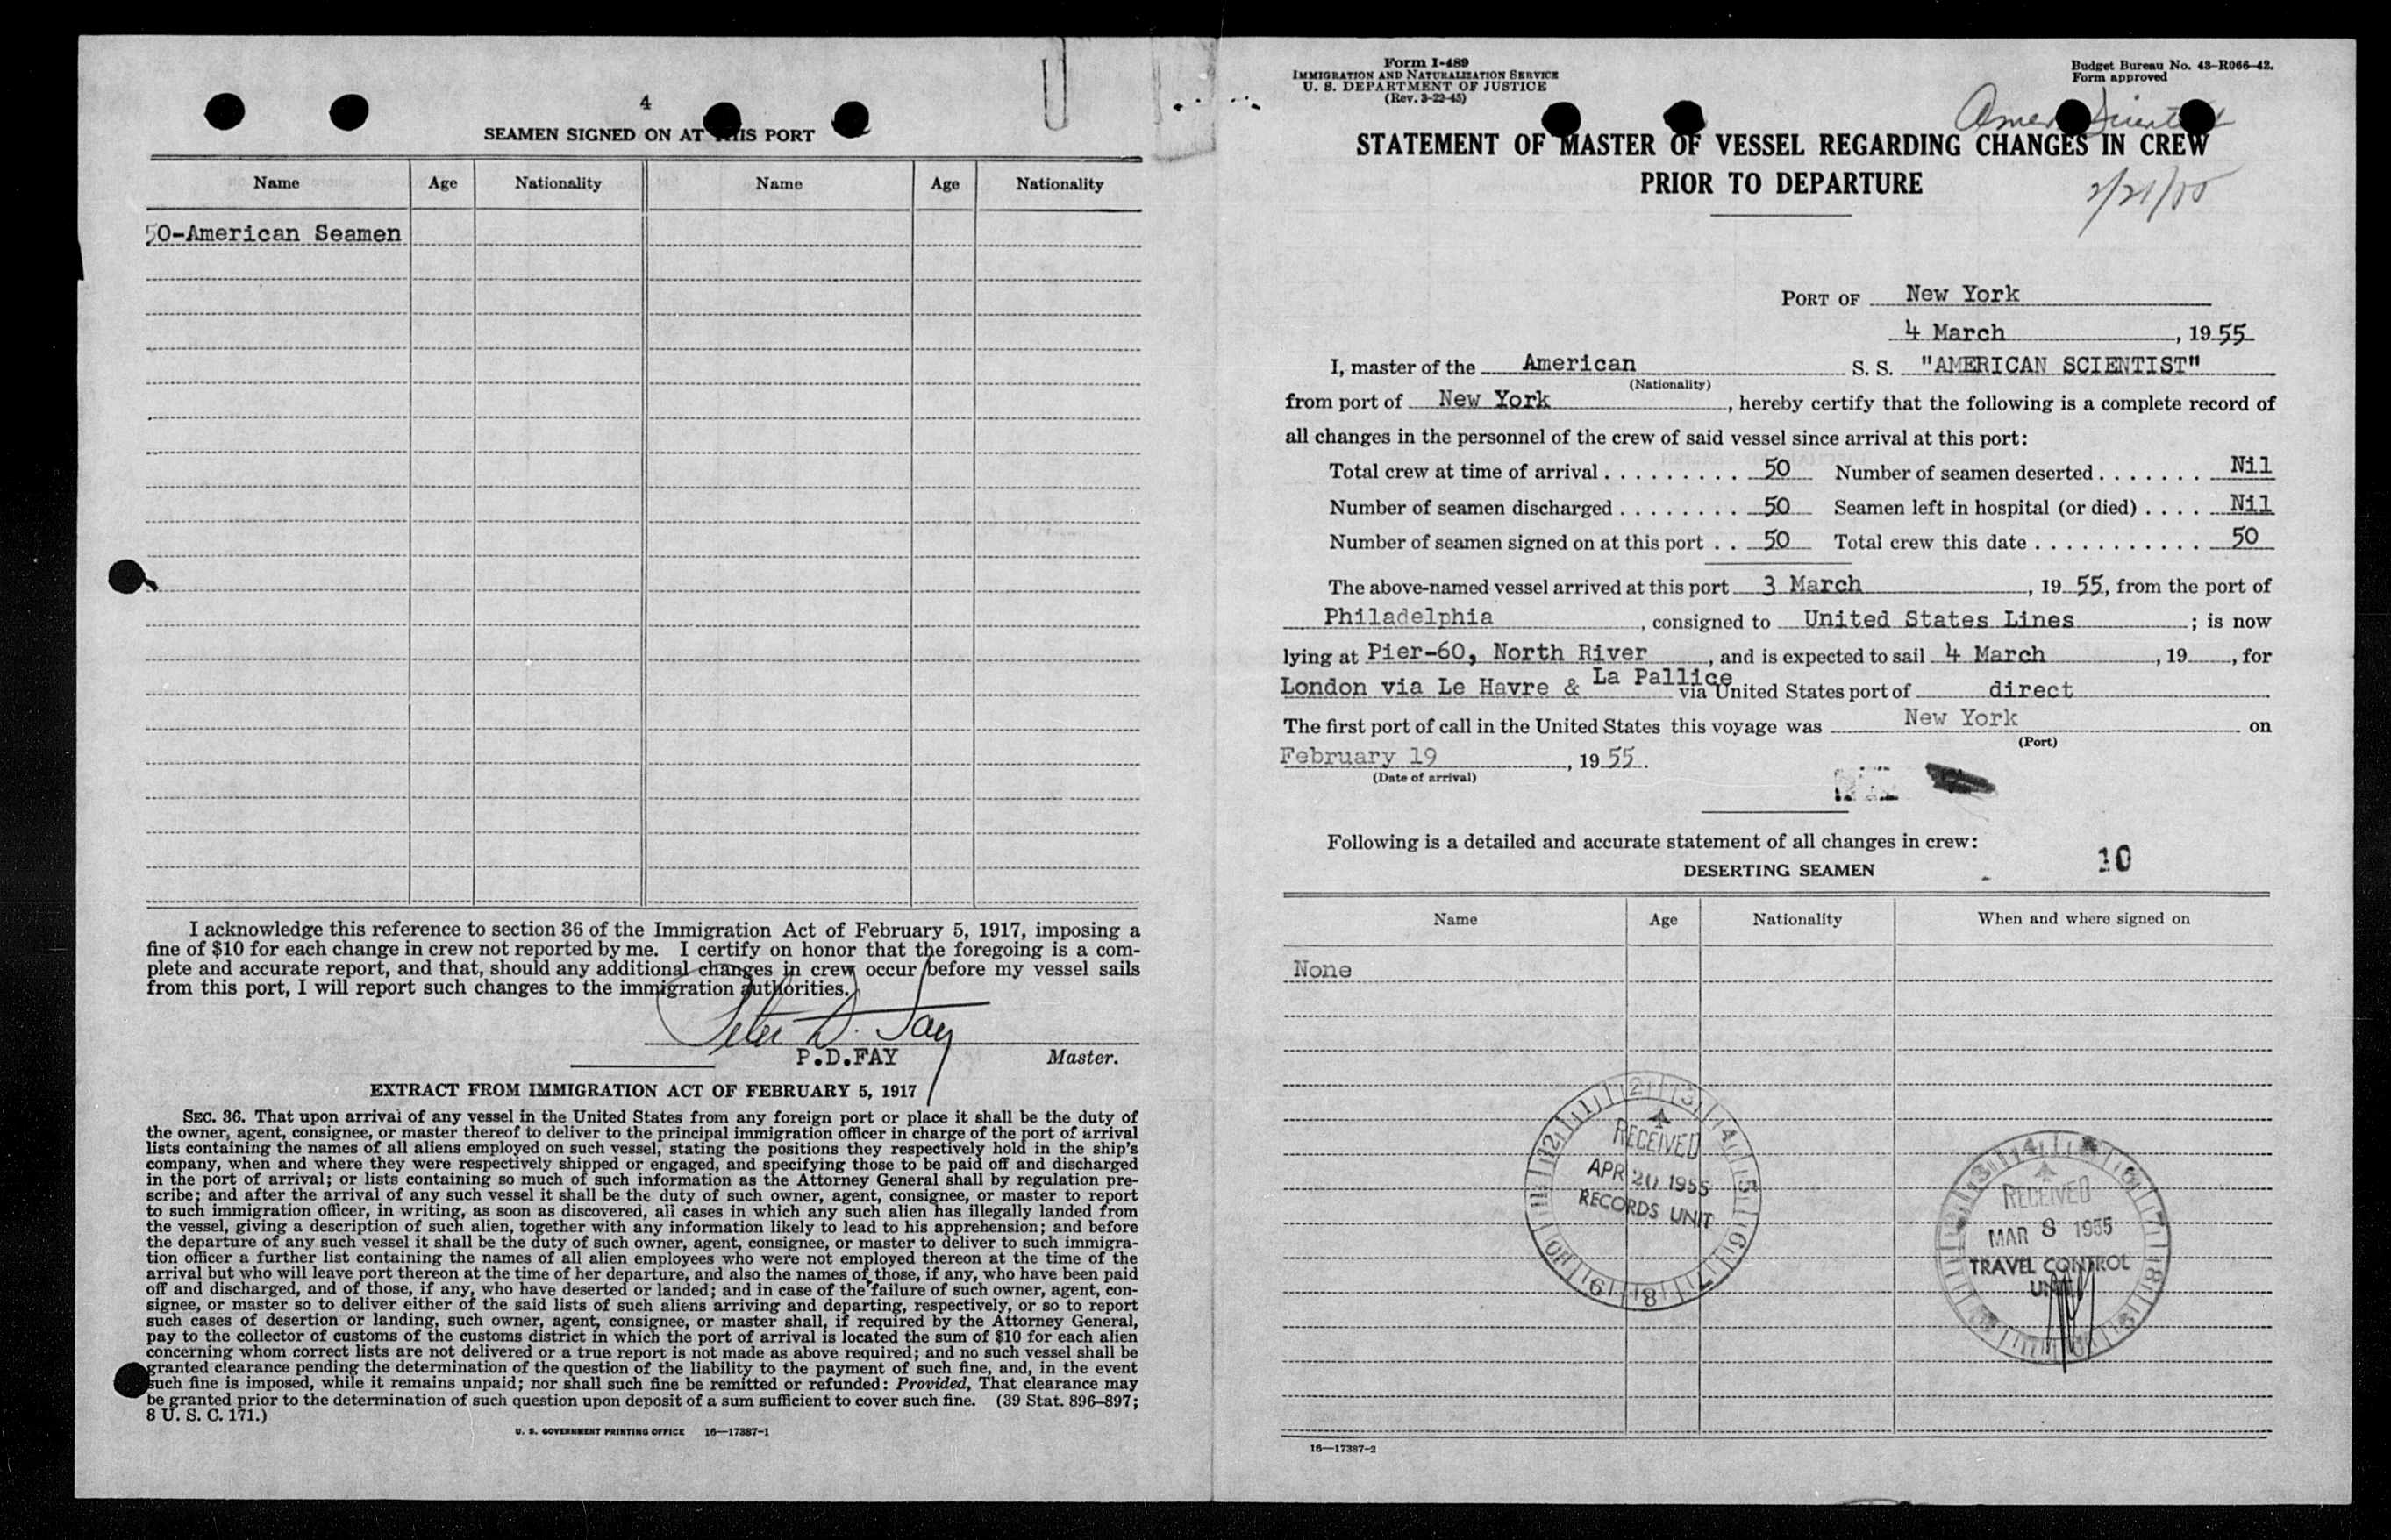 4
SEAMEN SIGNED ON AT THIS PORT
Name Age Nationality Name Age Nationality
50-American Seamen
I acknowledge this reference to section 36 of the Immigration Act of February 5, 1917, imposing a
fine of $10 for each change in crew not reported by me. I certify on honor that the foregoing is a com-
plete and accurate report, and that, should any additional changes in crew occur before my vessel sails
from this port, I will report such changes to the immigration authorities.
Peter D. Fay
P.D.FAY Master.
EXTRACT FROM IMMIGRATION ACT OF FEBRUARY 5, 1917
SEC. 36. That upon arrival of any vessel in the United States from any foreign port or place it shall be the duty of
the owner, agent, consignee, or master thereof to deliver to the principal immigration officer in charge of the port of arrival
lists containing the names of all aliens employed on such vessel, stating the positions they respectively hold in the ship's
company, when and where they were respectively shipped or engaged, and specifying those to be paid off and discharged
in the port of arrival; or lists containing so much of such information as the Attorney General shall by regulation pre-
scribe; and after the arrival of any such vessel it shall be the duty of such owner, agent, consignee, or master to report
to such immigration officer, in writing, as soon as discovered, all cases in which any such alien has illegally landed from
the vessel, giving a description of such alien, together with any information likely to lead to his apprehension; and before
the departure of any such vessel it shall be the duty of such owner, agent, consignee, or master to deliver to such immigra-
tion officer a further list containing the names of all alien employees who were not employed thereon at the time of the
arrival but who will leave port thereon at the time of her departure, and also the names of those, if any, who have been paid
off and discharged, and of those, if any, who have deserted or landed; and in case of the failure of such owner, agent, con-
signee, or master so to deliver either of the said lists of such aliens arriving and departing, respectively, or so to report
such cases of desertion or landing, such owner, agent, consignee, or master shall, if required by the Attorney General,
pay to the collector of customs of the customs district in which the port of arrival is located the sum of $10 for each alien
concerning whom correct lists are not delivered or a true report is not made as above required; and no such vessel shall be
granted clearance pending the determination of the question of the liability to the payment of such fine, and, in the event
such fine is imposed, while it remains unpaid; nor shall such fine be remitted or refunded: Provided, That clearance may
be granted prior to the determination of such question upon deposit of a sum sufficient to cover such fine. (39 Stat. 896-897;
8 U. S. C. 171.)
U. S. GOVERNMENT PRINTING OFFICE 16—17387-1
Form I-489
IMMIGRATION AND NATURALIZATION SERVICE
U. S. DEPARTMENT OF JUSTICE
(Rev. 3-22-45)
Budget Bureau No. 43-R066-42.
Form approved
Amer Scientist
STATEMENT OF MASTER OF VESSEL REGARDING CHANGES IN CREW
PRIOR TO DEPARTURE
2/21/55
PORT OF New York
4 March, 1955
I, master of the American S. S. "AMERICAN SCIENTIST"
(Nationality)
from port of New York, hereby certify that the following is a complete record of
all changes in the personnel of the crew of said vessel since arrival at this port:
Total crew at time of arrival . . . . . . . . . 50 Number of seamen deserted . . . . . . . Nil
Number of seamen discharged . . . . . . . . 50 Seamen left in hospital (or died) . . . . Nil
Number of seamen signed on at this port . . 50 Total crew this date . . . . . . . . . . . 50
The above-named vessel arrived at this port 3 March, 19 55, from the port of
Philadelphia, consigned to United States Lines; is now
lying at Pier-60, North River, and is expected to sail 4 March, 19 , for
London via Le Havre & La Pallice via United States port of direct
The first port of call in the United States this voyage was New York on
(Port)
February 19, 19 55.
(Date of arrival)
Following is a detailed and accurate statement of all changes in crew:
10
DESERTING SEAMEN
Name Age Nationality When and where signed on
None
RECEIVED
APR 20 1955
RECORDS UNIT
RECEIVED
MAR 8 1955
TRAVEL CONTROL
UNIT
16—17387-2